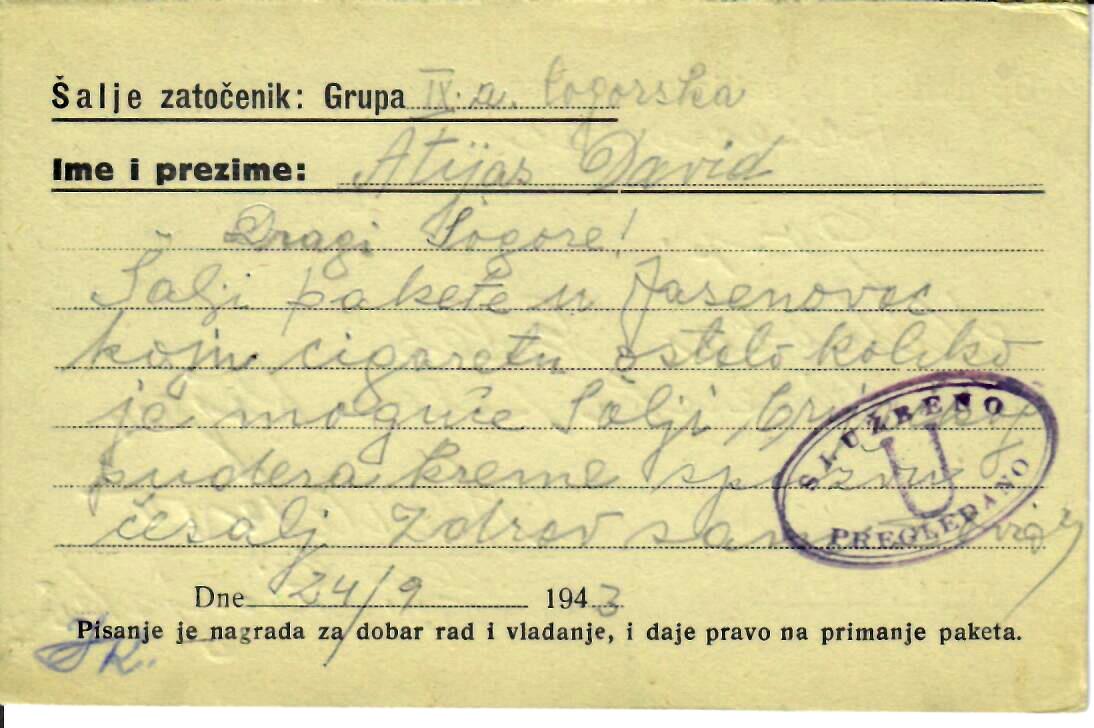 Šalje zatočenik: Grupa IX. a. logorska
Ime i prezime: Atijas David
Dragi Šogore!
Šalji pakete u Jasenovac
koju cigaretu ostalo koliko
je moguće Šalji
pudera kreme
češalj Zdrav sam
SLUŽBENO
U
PREGLEDANO
Dne 24/9 1943
Pisanje je nagrada za dobar rad i vladanje, i daje pravo na primanje paketa.